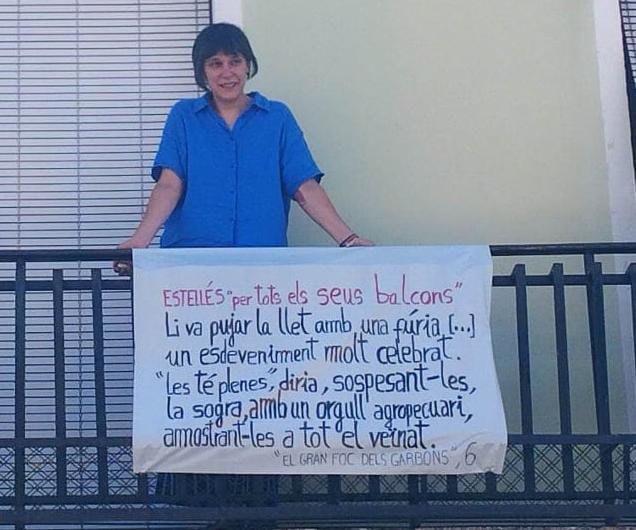 ESTELLÉS "per tots els seus balcons"
Li va pujar la llet amb una fúria, [...]
un esdeveniment molt celebrat.
"Les té plenes", diria, sospesant-les,
la sogra, amb un orgull agropecuari,
amostrant-les a tot el veïnat.
"EL GRAN FOC DELS GARBONS", 6